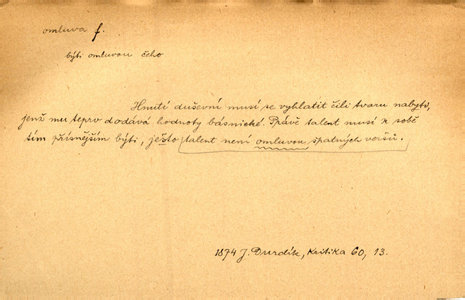 omluva f.
býti omluvou čeho
Hmitί duševní musí se vyhlatit čili tvaru nabyti,
jenž mu teprv dodává hodnoty básnické. Právě talent musí k sobě
tím přísnějším býti, ješto talent není omluvou špatných veršů.
1874 J. Durdík, Kritika 60, 13.